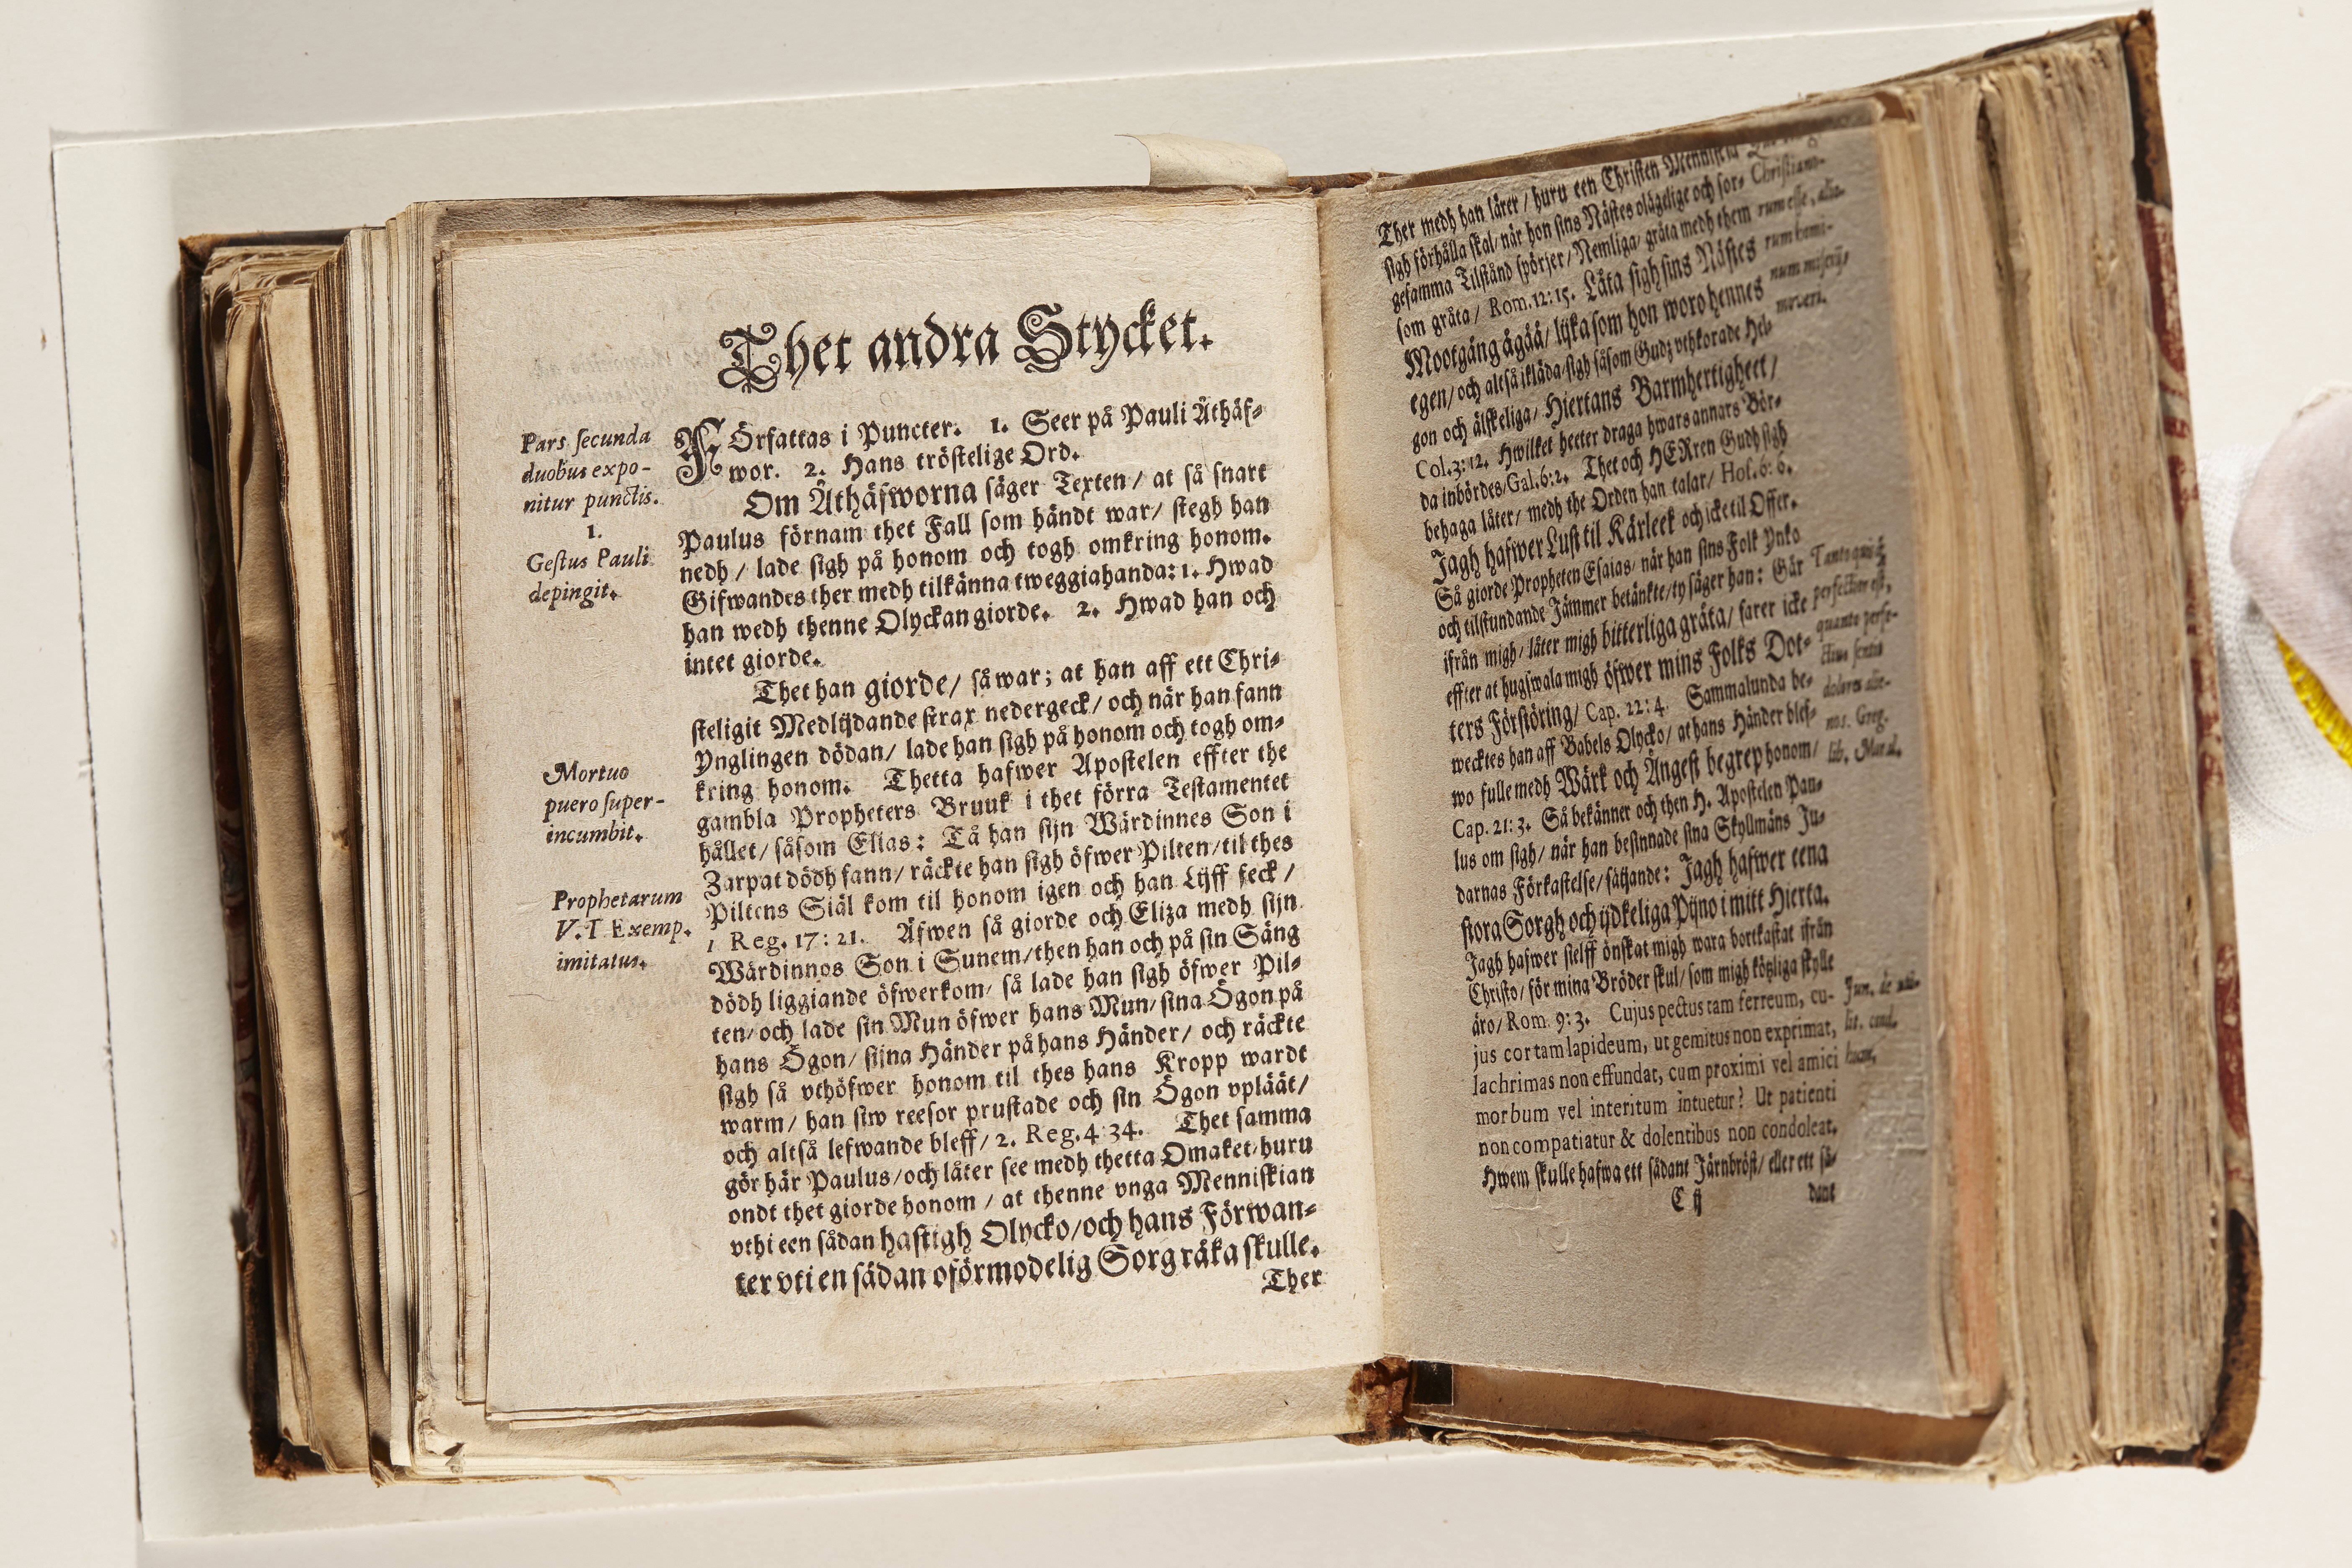 Thet andra Stycket.
Pars secunda
duobus expo-
nitur punctis.
1.
Gestus Pauli
depingit.
Mortuo
puero super-
incumbit.
Prophetarum
V. T Exemp.
imitatus.
FÖrfattas i Puncter. 1. Seer på Pauli Äthäf-
wor. 2. Hans tröstelige Ord.
Om Äthäfworna säger Texten/ at så snart
Paulus förnam thet Fall som händt war/ stegh han
nedh/ lade sigh på honom och togh omkring honom.
Gifwandes ther medh tilkänna tweggiahanda: 1. Hwad
han wedh thenne Olyckan giorde. 2. Hwad han och
intet giorde.
Thet han giorde/ så war; at han aff ett Chri-
steligit Medlijdande strax nedergeck/ och när han fann
Ynglingen dödan/ lade han sigh på honom och togh om-
kring honom. Thetta hafwer Apostelen effter the
gambla Propheters Bruuk i thet förra Testamentet
hållet/ såsom Elias: Tå han sijn Wärdinnes Son i
Zarpat dödh fann/ räckte han sigh öfwer Pilten/ til thes
Piltens Siäl kom til honom igen och han Lijff feck/
1 Reg. 17: 21. Äfwen så giorde och Eliza medh sijn
Wärdinnos Son i Sunem/ then han och på sin Säng
dödh liggiande öfwerkom/ så lade han sigh öfwer Pil-
ten/ och lade sin Mun öfwer hans Mun/ sina Ögon på
hans Ögon/ sijna Händer på hans Händer/ och räckte
sigh så vthöfwer honom til thes hans Kropp wardt
warm/ han siw reesor prustade och sin Ögon vpläät/
och altså lefwande bleff/ 2. Reg. 4: 34. Thet samma
gör här Paulus/ och låter see medh thetta Omaket/ huru
ondt thet giorde honom/ at thenne vnga Menniskian
vthi een sådan hastigh Olycko/ och hans Förwan-
ter vti en sådan oförmodelig Sorg råka skulle.
Ther
Ther medh han lärer/ huru een Christen Menniskia
sigh förhålla skal/ när hon sins Nästes olägelige och sor-
gesamma Tilstånd spörjer/ Nemliga/ gråta medh them
som gråta/ Rom. 12: 15. Låta sigh sins Nästes
Mootgång ågåå/ lijka som hon woro hennes
egen/ och altså ikläda sigh såsom Gudz vthkorade Hel-
gon och älskeliga/ Hiertans Barmhertigheet/
Col. 3: 12. Hwilket heeter draga hwars annars Bör-
da inbördes/ Gal. 6: 2. Thet och HERren Gudh sigh
behaga låter/ medh the Orden han talar/ Hos. 6: 6.
Jagh hafwer Lust til Kärleek och icke til Offer.
Så giorde Propheten Esaias/ när han sins Folk Ynko
och tilstundande Jämmer betänkte/ ty säger han: Går
ifrån migh/ låter migh bitterliga gråta/ farer icke
effter at hugswala migh öfwer mins Folks Dot-
ters Förstöring/ Cap. 22: 4. Sammalunda be-
wecktes han aff Babels Olycko/ at hans Händer blef-
wo fulle medh Wärk och Ångest begrep honom/
Cap. 21: 3. Så bekänner och then H. Apostelen Pau-
lus om sigh/ när han besinnade sina Skyllmäns Ju-
darnas Förkastelse/ säijande: Jagh hafwer eena
stora Sorgh och ijdkeliga Pijno i mitt Hierta.
Jagh hafwer sielff önskat migh wara bortkastat ifrån
Christo/ för mina Bröder skul/ som migh kötzliga skylle
äro/ Rom. 9: 3. Cujus pectus tam ferreum, cu-
jus cor tam lapideum, ut gemitus non exprimat,
lachrimas non effundat, cum proximi vel amici
morbum vel interitum intuetur? Ut patienti
non compatiatur & dolentibus non condoleat.
Hwem skulle hafwa ett sådant Järnbröst/ eller ett så-
C ij
dant
Christiano-
rum esse, alio-
rum
num miserijs
moveri.
Tanto quisq;
perfectior est,
quanto perfe-
ctius sentit
dolores alie-
nos. Greg.
lib. Moral.